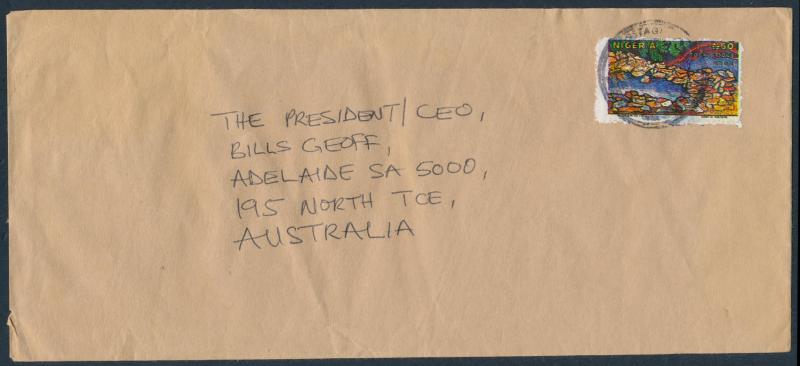 THE PRESIDENT/CEO,
BILLS GEOFF,
ADELAIDE SA 5000,
195 NORTH TCE,
AUSTRALIA
NIGERIA
N50